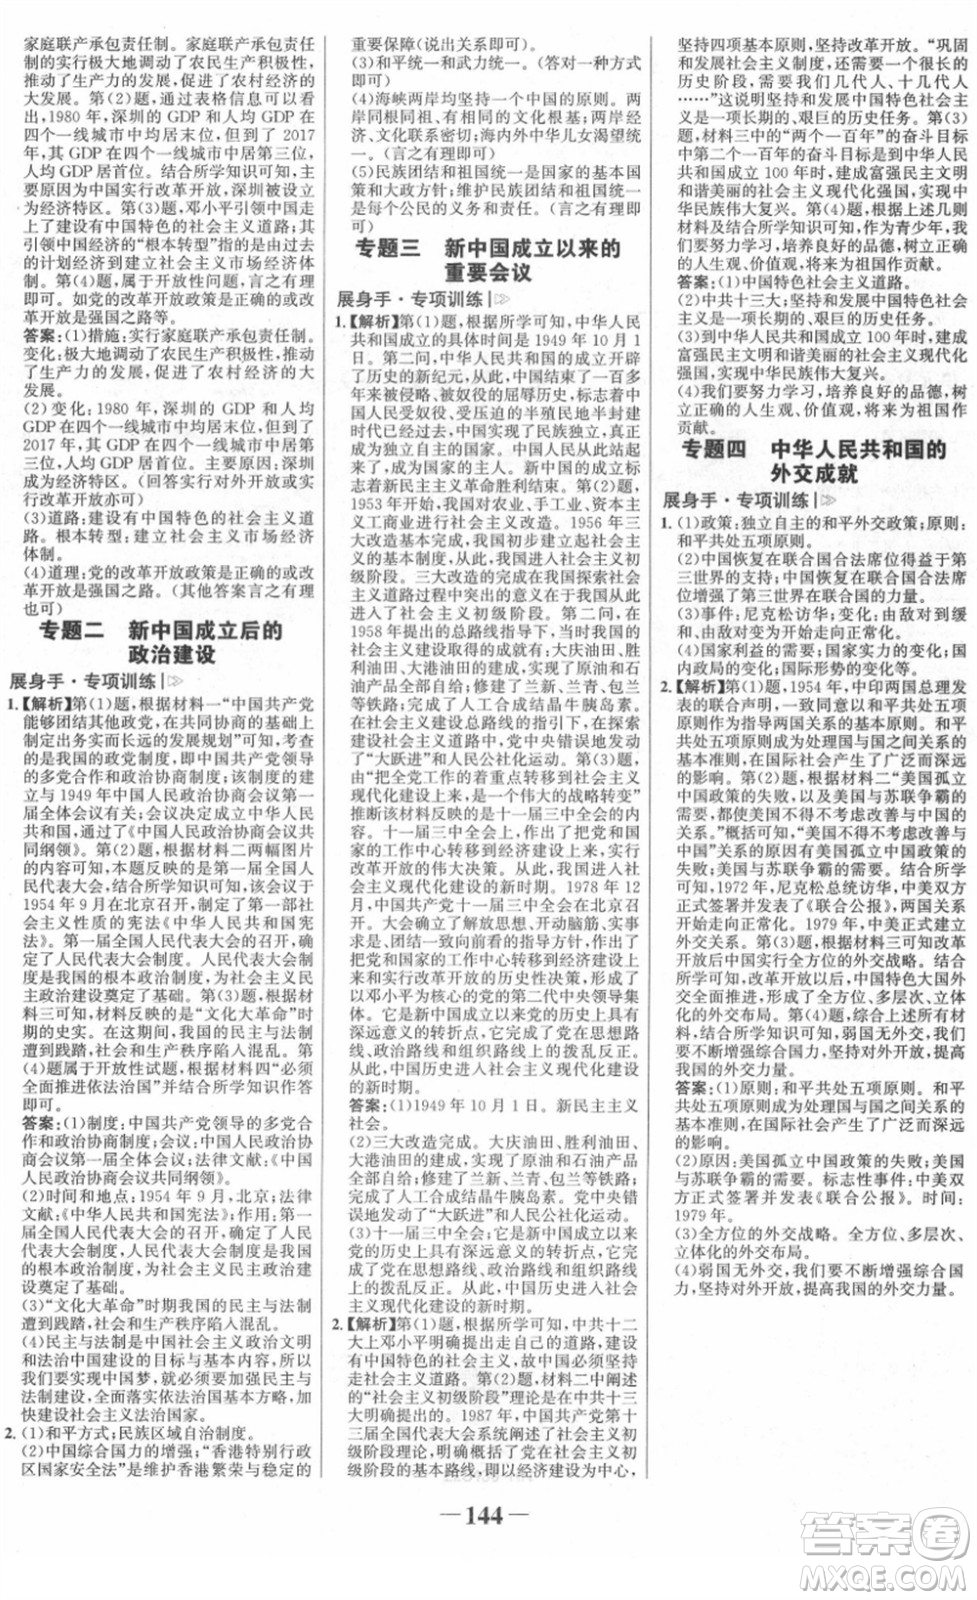 家庭联产承包责任制。家庭联产承包责任制
的实行极大地调动了农民生产积极性,
推动了生产力的发展,促进了农村经济的
大发展。第(2)题,通过表格信息可以看
出,1980 年,深圳的 GDP 和人均 GDP 在
四个一线城市中均居末位,但到了 2017
年,其 GDP 在四个一线城市中居第三位,
人均 GDP 居首位。结合所学知识可知,主
要原因是中国实行改革开放,深圳被设立
为经济特区。第(3)题,邓小平引领中国走
上了建设有中国特色的社会主义道路;其
引领中国经济的“根本转型”指的是由过去
的计划经济到建立社会主义市场经济体
制。第(4)题,属于开放性问题,言之有理
即可。如党的改革开放政策是正确的或
改革开放是强国之路等。
答案:(1)措施:实行家庭联产承包责任制。
变化:极大地调动了农民生产积极性,推
动了生产力的发展,促进了农村经济的大
发展。
(2)变化:1980 年,深圳的 GDP 和人均
GDP 在四个一线城市中均居末位,但到了
2017 年,其 GDP 在四个一线城市中居第
三位,人均 GDP 居首位。主要原因:深圳
成为经济特区。(回答实行对外开放或实
行改革开放也可)
(3)道路:建设有中国特色的社会主义道
路。根本转型:建立社会主义市场经济
体制。
(4)道理:党的改革开放政策是正确的或
改革开放是强国之路。(其他答案言之有理
也可)
专题二 新中国成立后的
政治建设
展身手·专项训练
1.【解析】第(1)题,根据材料一“中国共产党
能够团结其他政党,在共同协商的基础上
制定出务实而长远的发展规划”可知,考查
的是新中国的民主政治,即中国共产党领导
的多党合作和政治协商制度;该制度的建立
与 1949 年中国人民政治协商会议第一
届全体会议有关;会议决定成立中华人民共
和国,通过了《中国人民政治协商会议共
同纲领》。第(2)题,根据材料二两幅图片
的内容可知,本题反映的是第一届全国人
民代表大会。结合所学知识可知,该会议于
1954 年 9 月在北京召开,制定了第一部社
会主义性质的宪法《中华人民共和国宪
法》。第一届全国人民代表大会的召开,确
立了人民代表大会制度。人民代表大会制
度是我国的根本政治制度,为社会主义民
主政治建设奠定了基础。第(3)题,根据材
料三可知,材料反映的是“文化大革命”时
期的史实。在这期间,我国的民主与法制
遭到践踏,社会和生产秩序陷入混乱。第
(4)题属于开放性试题,根据材料四“必须
全面推进依法治国”并结合所学知识作答
即可。
答案:(1)制度:中国共产党领导的多党合
作和政治协商制度;会议:中国人民政治协商
会议第一届全体会议;法律文献:《中国人
民政治协商会议共同纲领》。
(2)时间和地点:1954 年 9 月,北京;法律
文献:《中华人民共和国宪法》;作用:第一届
全国人民代表大会的召开,确立了人民代
表大会制度。人民代表大会制度是我国的
根本政治制度,为社会主义民主政治建设
奠定了基础。
(3)“文化大革命”时期我国的民主与法制
遭到践踏,社会和生产秩序陷入混乱。
(4)民主与法制是社会主义政治文明
和法治中国建设的目标与基本内容;要
实现中国梦,就必须进一步加强民主与法
制建设,全面落实依法治国基本方略,加
快建设社会主义法治国家。
2. (1)和平方式;民族区域自治制度。
(2)中国综合国力的增强;“香港特别行政
区国家安全法”是维护香港繁荣与稳定的
重要保障(说出关系即可)。
(3)和平统一和武力统一。(答对一种方式
即可)
(4)海峡两岸均坚持一个中国的原则。两
岸同根同源,有共同的文化根基;两岸经
济、文化联系密切;海内外中华儿女渴望统
一。(言之有理即可)
(5)民族团结和祖国统一是国家的基本国
策和大政方针;维护民族团结和祖国统一
是每个公民的义务和责任。(言之有理即
可)
专题三 新中国成立以来的
重要会议
展身手·专项训练
1.【解析】第(1)题,根据所学可知,中华人民
共和国成立的具体时间是 1949 年 10 月 1
日。第二问,中华人民共和国的成立开辟
了历史的新纪元,从此,中国结束了一百多
年来被侵略、被奴役的屈辱历史,标志着中
国人民受奴役、受压迫的半殖民地半封建
时代已经过去,中国实现了民族独立,真正
成为独立自主的国家,中国人民从此站起
来了,成为国家的主人。新中国的成立标
志着新民主主义革命胜利结束。第(2)题,
1953 年,国家开始对农业、手工业、资本主
义工商业进行社会主义改造。1956 年三
大改造基本完成,初步建立起社会主义
的基本制度,从此,我国进入社会主义初
级阶段。三大改造的完成在我国探索社会
主义过程中的意义在于我国开始从此进
入了社会主义初级阶段。第二问,在
1958 年提出的总路线指引下,我国探索
社会主义建设取得的成就有:大庆油田、胜
利油田、大港油田的建设,实现了石油和石
油产品全部自给;修建了兰新、兰青、包兰
等铁路;人工合成了结晶牛胰岛素。第三
问,在社会主义建设总路线的指引下,探索
社会主义建设道路中,党中央错误地发动
了“大跃进”和人民公社化运动。第(3)题,
根据材料“把全党工作的着重点转移到社
会主义现代化建设上,是一个伟大的战略转变”
推断该材料反映的是十一届三中全会的内
容。十一届三中全会作出了把党和国家
的工作中心转移到经济建设上来,实行改
革开放的伟大决策。1978 年 12 月,
中国共产党十一届三中全会在北京召
开,大会确立了解放思想、开动脑筋、实
事求是、团结一致向前看的指导方针,作出
把党和国家的工作中心转移到经济建设
上来、实行改革开放的历史性决策,形成
了以邓小平为核心的党的第二代中央领导
集体。它是新中国成立以来党的历史上具有
深远意义的转折点,它完成了党在思想路
线、政治路线和组织路线上的拨乱反正。从
此,中国历史进入社会主义现代化建设的
新时期。
答案:(1)1949 年 10 月 1 日。新民主主义
社会。
(2)三大改造完成。大庆油田、胜利油田、
大港油田的建设,实现了石油和石油产品
全部自给;修建了兰新、兰青、包兰等铁路;
人工合成了结晶牛胰岛素。(写出两例即
可)发动了“大跃进”和人民公社化运动。
(3)十一届三中全会;它是新中国成立以来
党的历史上具有深远意义的转折点,它完
成了党在思想路线、政治路线和组织路线
上的拨乱反正。中国历史进入社会主义现
代化建设的新时期。
2.【解析】第(1)题,根据所学可知,中共十二
大上邓小平明确提出走自己的道路,建设
有中国特色的社会主义,故中国必须坚持
走社会主义道路。第(2)题,材料二中阐述
的“社会主义初级阶段”理论是在中共十三
大明确提出的。1987 年,中国共产党第十
三届全国代表大会系统阐述了社会主义
初级阶段理论,提出了党在社会主义初级
阶段的基本路线,即以经济建设为中心,
坚持四项基本原则,坚持改革开放。“巩固
和发展社会主义制度,还需要一个很长的
历史阶段,需要我们几代人、十几代人
……”这说明坚持和发展中国特色社会主
义是一项长期的、艰巨的历史任务。第(3)
题,材料三中的“两个一百年”的奋斗目标
中第二个一百年的奋斗目标是到中华人民
共和国成立 100 年时,建成富强民主文明
和谐美丽的社会主义现代化强国,实现中
华民族伟大复兴。第(4)题,根据上述几则
材料并结合所学可知,作为青少年,我
们要努力学习,培养良好的品德,树立正
确的人生观、价值观,将来为祖国作贡献。
答案:(1)中国特色社会主义道路。
(2)中共十三大;坚持和发展中国特色社会
主义是一项长期的、艰巨的历史任务。
(3)到中华人民共和国成立 100 年时,建成
富强民主文明和谐美丽的社会主义现代
化强国。
(4)我们要努力学习,培养良好的品德,树立
正确的人生观、价值观,将来为祖国作
贡献。
专题四 中华人民共和国的
外交成就
展身手·专项训练
1. (1)政策:独立自主的和平外交政策;原则:
和平共处五项原则。
(2)中国恢复在联合国合法席位得益于第
三世界的支持;中国恢复在联合国的合法席位
增强了第三世界在联合国的力量。
(3)事件:尼克松访华;变化:由敌对到缓
和。
(4)国家利益的需要;国家实力的变化;国
内政局的变化;国际形势的变化等。
2.【解析】第(1)题,1954 年,中印两国总理发
表的联合声明,一致同意以和平共处五项
原则作为指导两国关系的基本原则。和平
共处五项原则成为处理国与国关系的
基本准则,在国际社会产生了广泛而深远
的影响。第(2)题,根据材料二“美国孤立
中国政策的失败,以及美国与苏联争霸的
需要,都使美国不得不考虑改善与中国的
关系”可知,“美国不得不考虑改善与中国
关系”的原因有美国孤立中国政策的失败;
美国与苏联争霸的需要。结合所学知识可
知,1972 年,尼克松总统访华,中美双方正
式签署并发表了《联合公报》,两国关系开
始走向正常化。1979 年,中美正式建立
外交关系。第(3)题,根据材料三可知改革
开放以后中国呈现出全方位外交战略。结
合所学可知,改革开放以后,中国特色大国外
交全方位、多层次、立体化
的外交布局。第(4)题,综合上述材料,
结合所学知识可知,弱国无外交,我们要不
断增强综合国力,坚持对外开放,提高中国
的外交力量。
答案:(1)原则:和平共处五项原则。和平
共处五项原则成为处理国与国关系的
基本准则,在国际社会产生了广泛而深远
的影响。
(2)原因:美国孤立中国政策的失败;美国
与苏联争霸的需要。标志性事件:中美双
方正式签署并发表《联合公报》。时间:
1979 年。
(3)全方位的外交战略。全方位、多层次、
立体化的外交布局。
(4)弱国无外交,我们要不断增强综合国
力,坚持对外开放,提高中国的外交力量。
— 144 —
答案圈
MXQE.COM